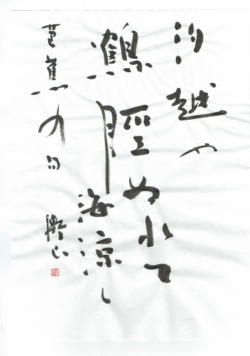 汐越や
鶴脛ぬれて
海涼し
芭蕉の句